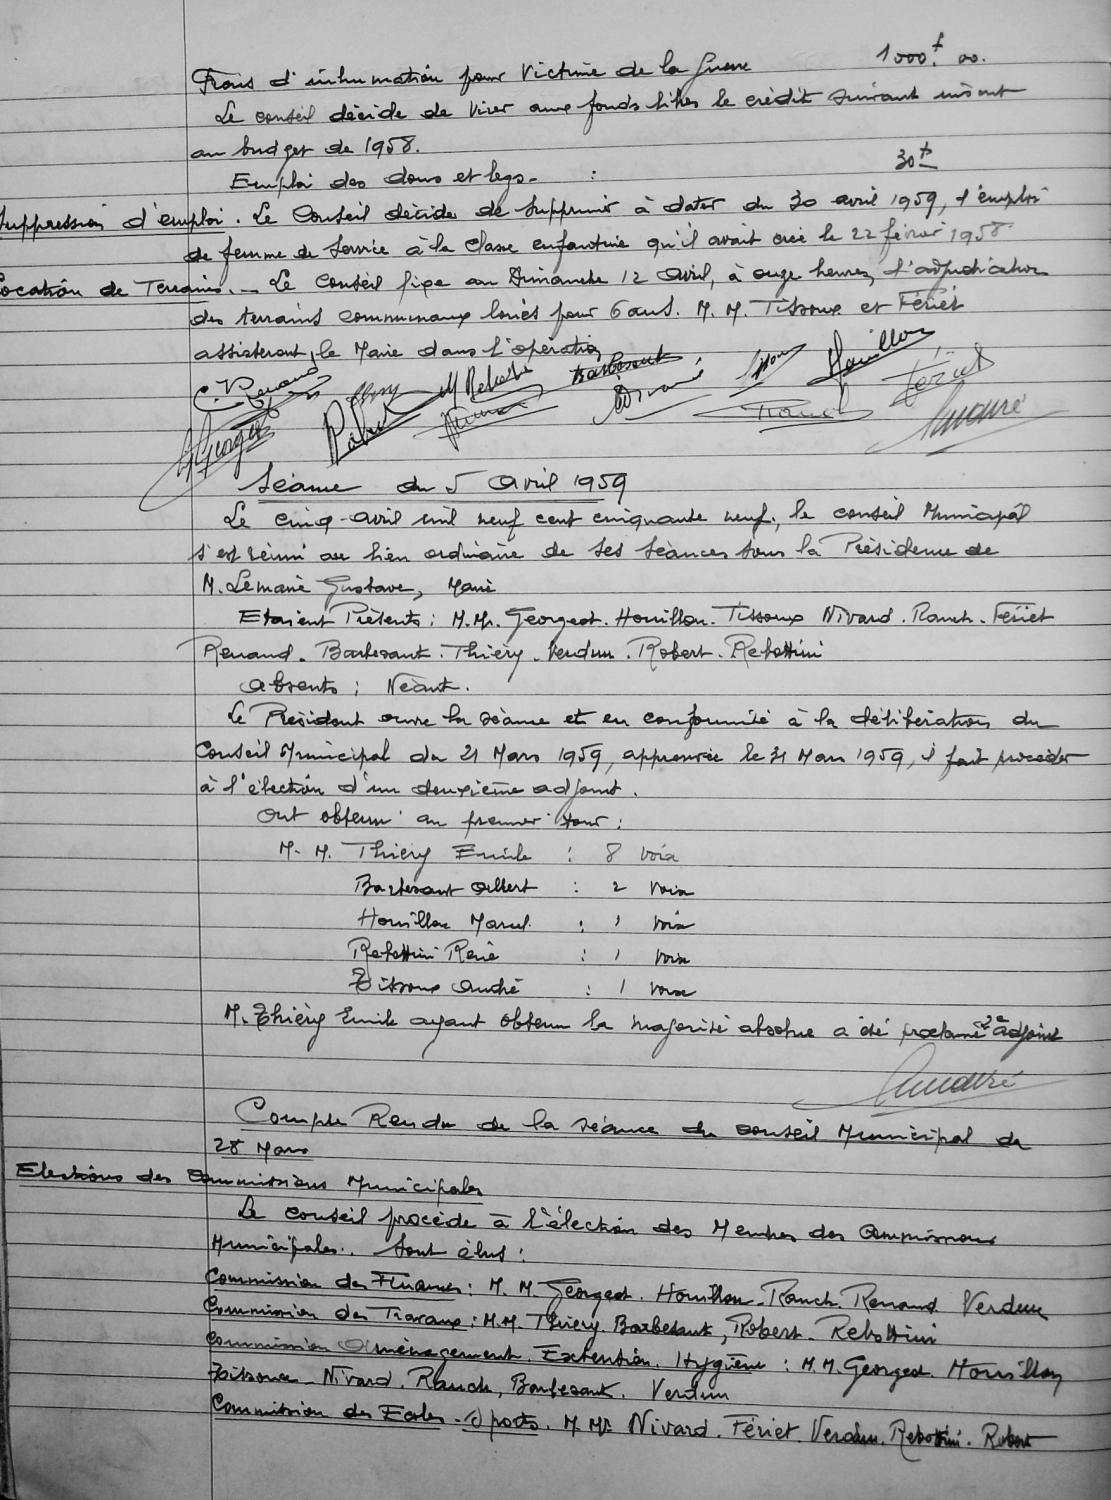 Frais d'inhumation pour Victime de la Guerre 1000f.00.
Le conseil décide de virer aux fonds libres le crédit suivant inscrit
au budget de 1958.
Emploi des dons et legs. : 30f
Suppression d'emploi. Le Conseil décide de supprimer à dater du 30 avril 1959, l'emploi
de femme de service à la classe enfantine qu'il avait créé le 22 février 1958.
Location de Terrains. _ Le Conseil fixe au Dimanche 12 Avril, à onze heures, l'adjudication
des terrains communaux loués pour 6 ans. M.M. Tissoux et Fériet
assisteront le Maire dans l'opération
C. Renaud M Rebottini Barbesant Tissoux Houillon Fériet
G Georgeot Robert Nivard Rauch Lemaire
Séance du 5 Avril 1959
Le cinq-avril mil neuf cent cinquante neuf, le conseil Municipal
s'est réuni au lieu ordinaire de ses séances sous la Présidence de
M. Lemaire Gustave, Maire
Etaient Présents : M.M. Georgeot. Houillon. Tissoux Nivard. Rauch. Fériet
Renaud. Barbesant. Thiéry. Verdun. Robert. Rebottini
Absents : Néant.
Le Président ouvre la séance et en conformité à la délibération du
Conseil Municipal du 21 Mars 1959, approuvée le 31 Mars 1959, il fait procéder
à l'élection d'un deuxième adjoint.
Ont obtenu au premier tour :
M. M. Thiéry Emile : 8 voix
Barbesant Albert : 2 voix
Houillon Marcel : 1 voix
Rebottini René : 1 voix
Tissoux André : 1 voix
M. Thiéry Emile ayant obtenu la majorité absolue a été proclamé 2e adjoint
Lemaire
Compte Rendu de la séance du conseil Municipal du
28 Mars
Elections des Commissions Municipales
Le conseil procède à l'élection des Membres des Commissions
Municipales. Sont élus :
Commission des Finances : M. M. Georgeot. Houillon. Rauch. Renaud Verdun
Commission des Travaux : M.M. Thiéry. Barbesant, Robert. Rebottini
Commission Aménagement. Extention. Hygiène : M.M. Georgeot. Houillon
Tissoux. Nivard. Rauch, Barbesant. Verdun
Commission des Ecoles. Sports. M. M. Nivard. Fériet. Verdun. Rebottini. Robert